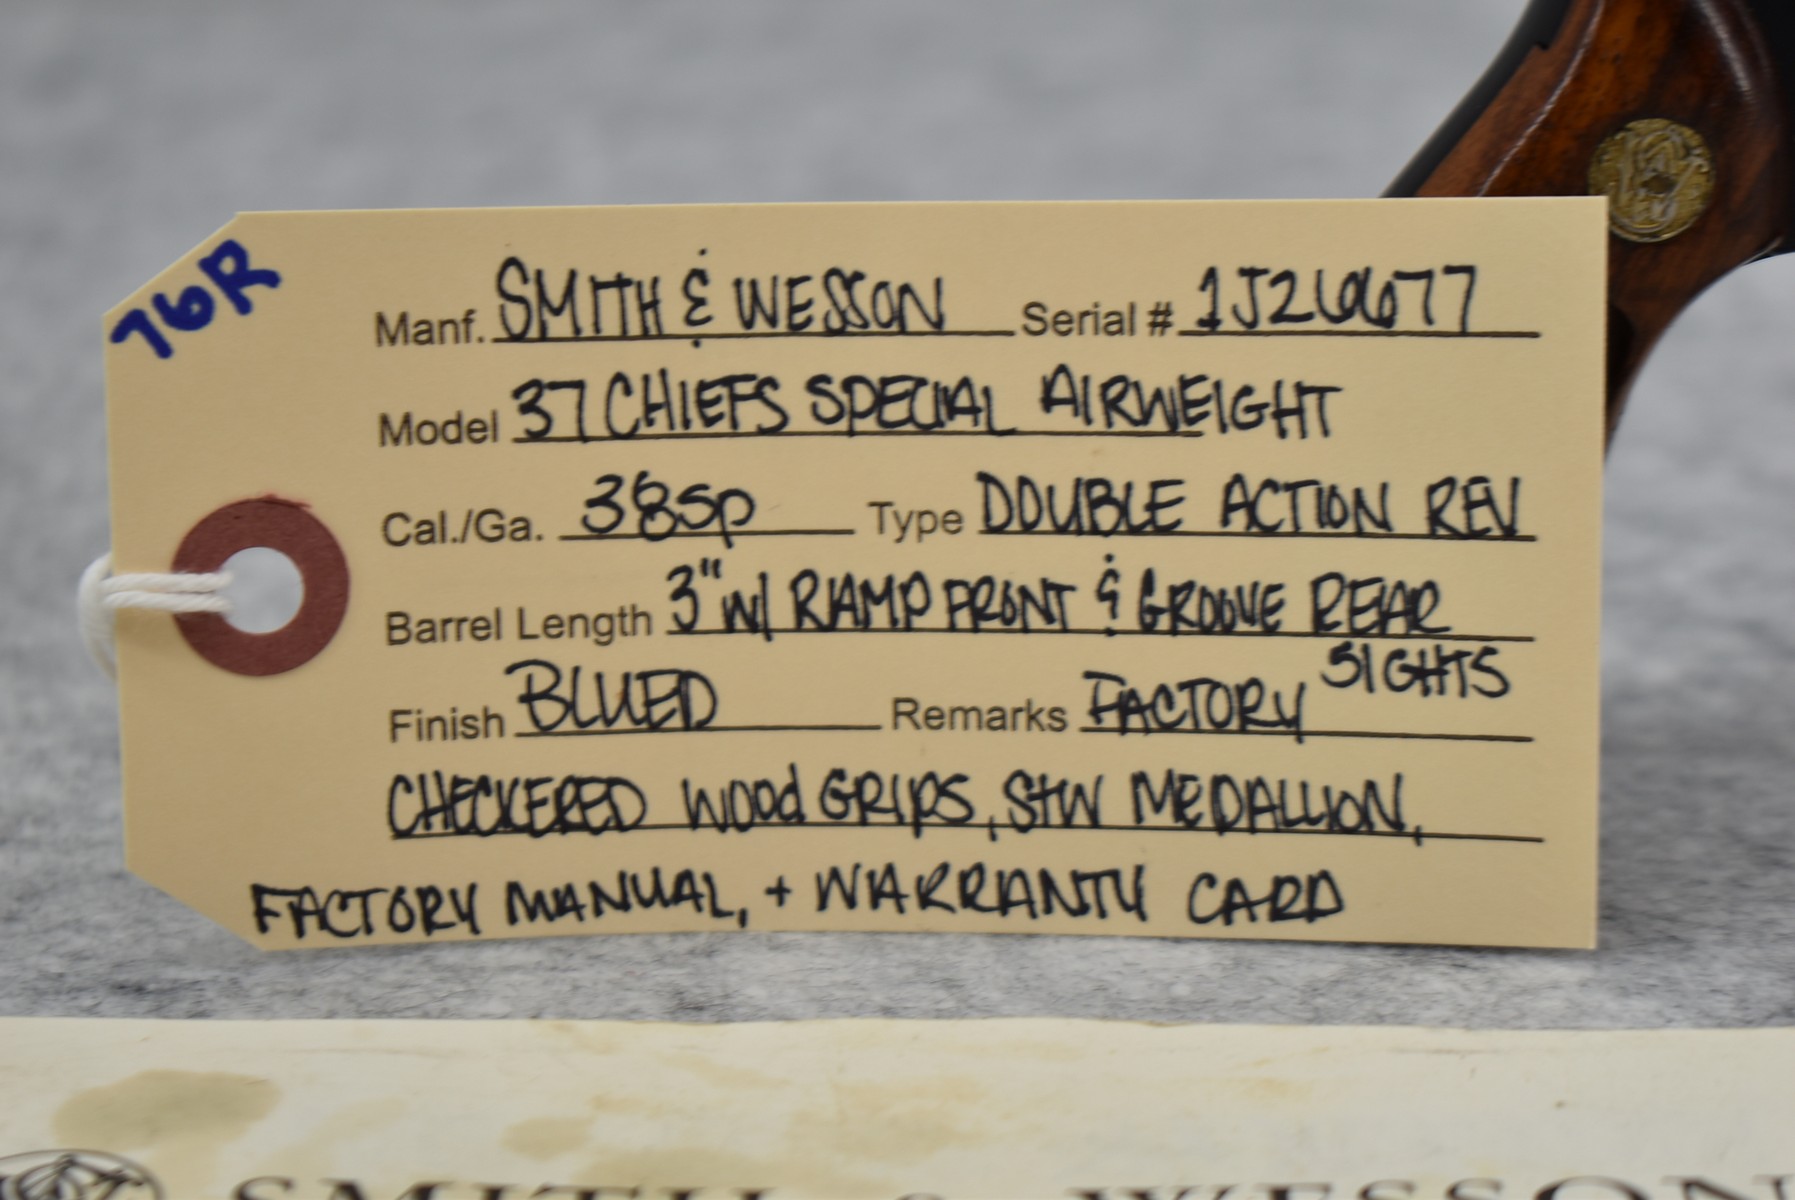 76R
Manf. SMITH & WESSON Serial # 1J26677
Model 37 CHIEFS SPECIAL AIRWEIGHT
Cal./Ga. 38SP Type DOUBLE ACTION REV
Barrel Length 3" W/ RAMP FRONT & GROOVE REAR
SIGHTS
Finish BLUED Remarks FACTORY
CHECKERED WOOD GRIPS, S+W MEDALLION,
FACTORY MANUAL, + WARRANTY CARD
SMITH & WESSON